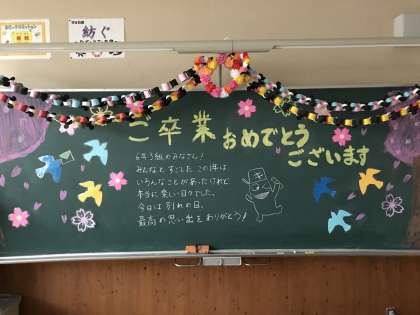 紡ぐ
ご卒業おめでとう
ございます
6年3組のみなさん!
みんなとすごした この1年は
いろんなことがあったけれど
本当に楽しい日々でした。
今日は別れの日、
最高の思い出をありがとう!